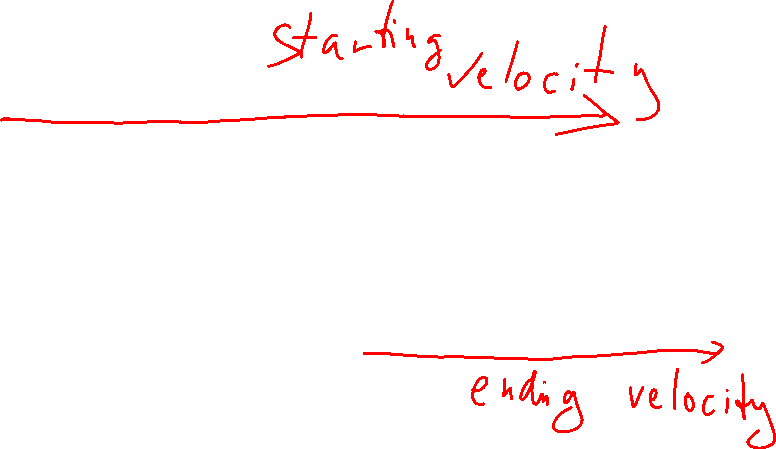 starting velocity
ending velocity